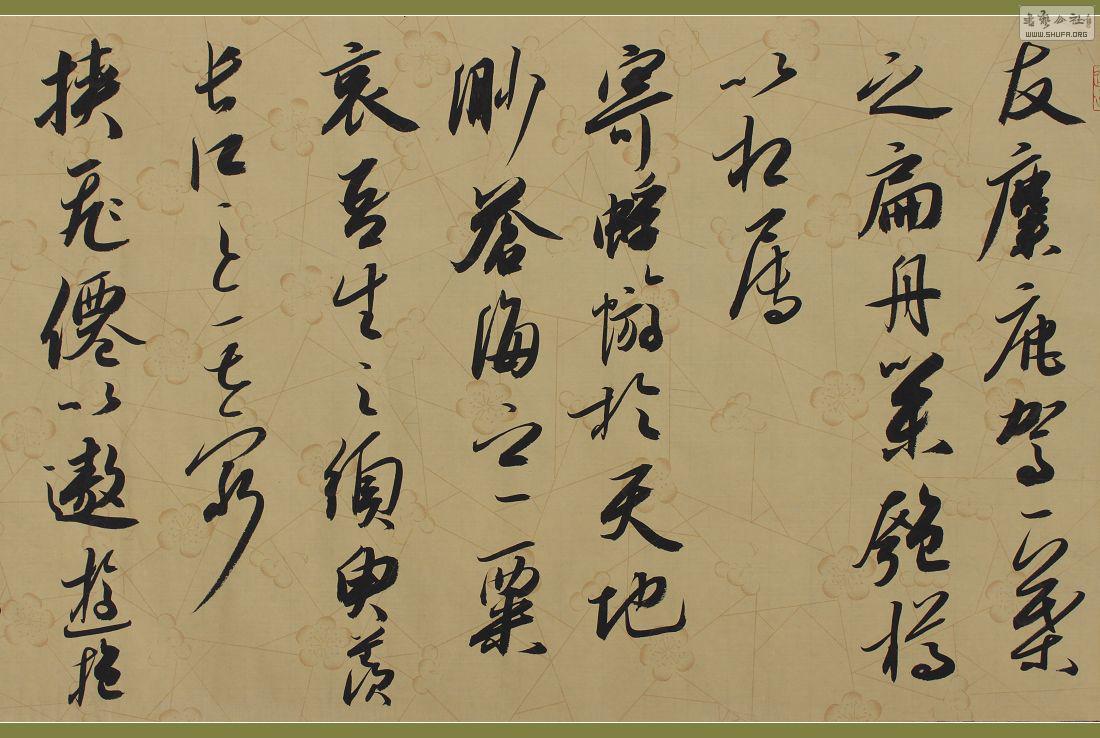 友麋鹿駕一葉
之扁舟舉匏樽
以相属
寄蜉蝣於天地
渺蒼海之一粟
哀吾生之須臾羨
長江之無窮
挟飛僊以遨遊抱
书艺公社
WWW.SHUFA.ORG